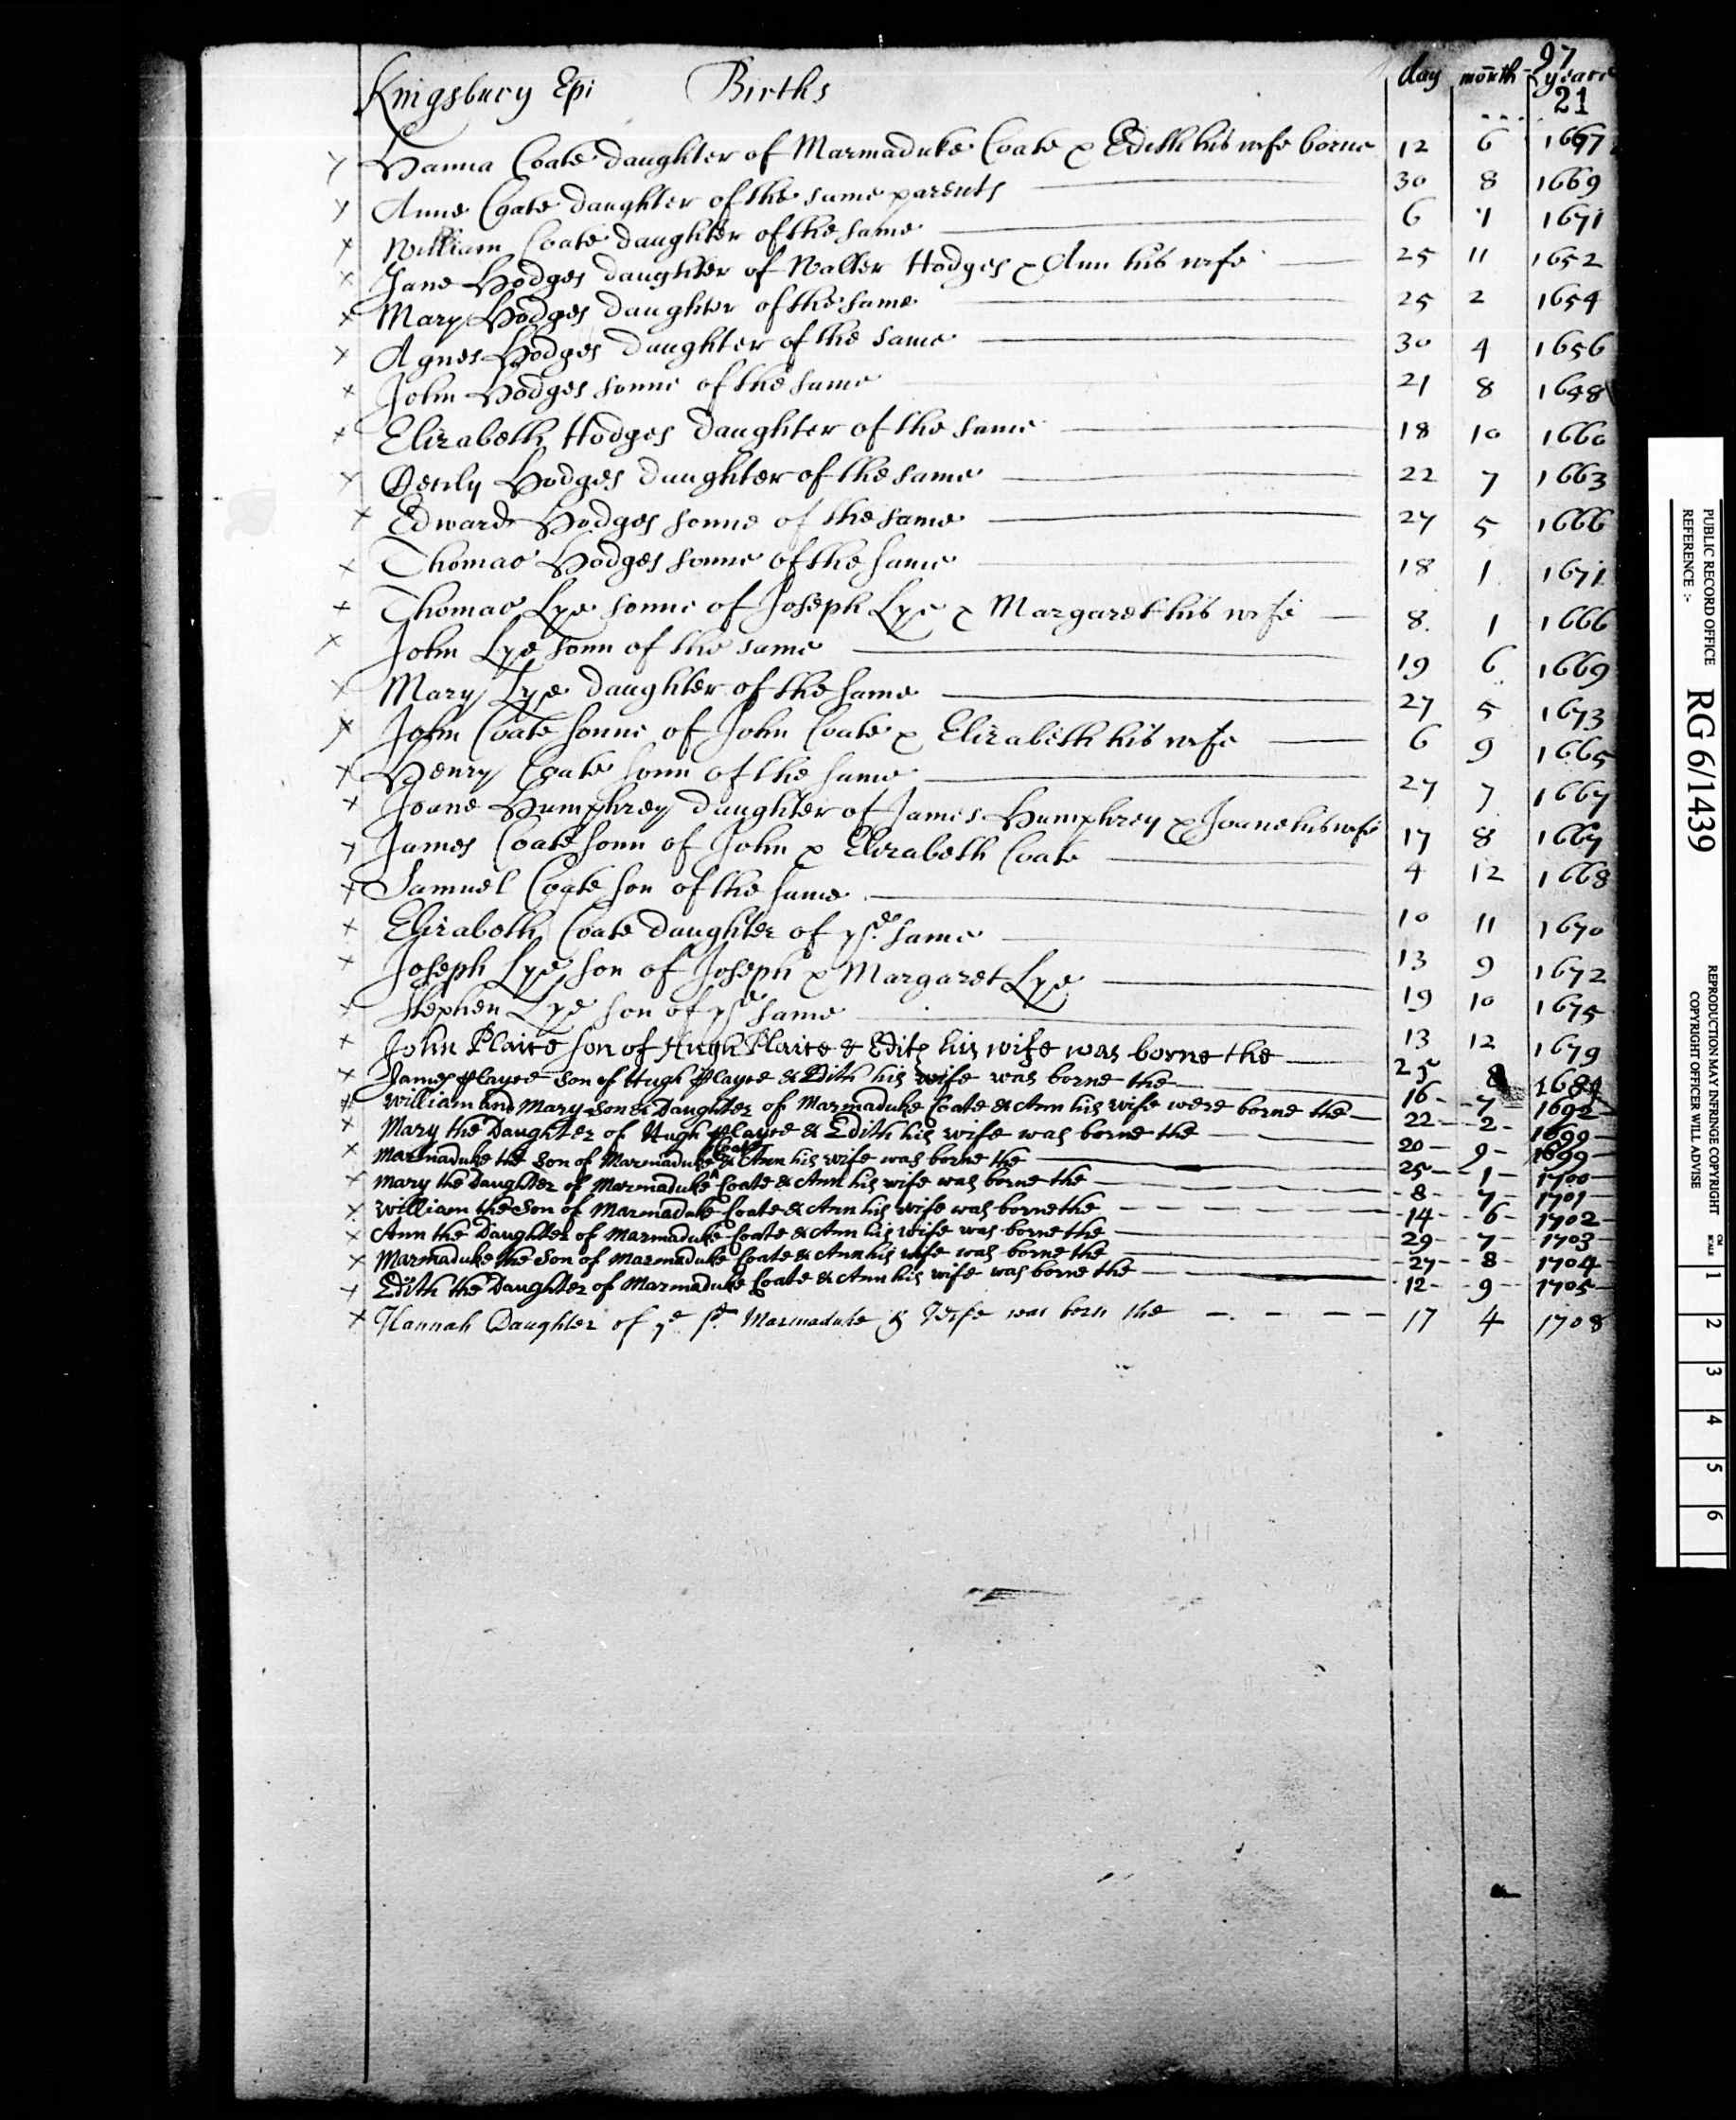 97
Kingsbury Epi Births day month yeare
21
Hanna Coate daughter of Marmaduke Coate & Edith his wife borne 12 6 1667
Anne Coate daughter of the same parents 30 8 1669
William Coate daughter of the same 6 1 1671
Jane Hodges daughter of Walter Hodges & Ann his wife 25 11 1652
Mary Hodges daughter of the same 25 2 1654
Agnes Hodges daughter of the same 30 4 1656
John Hodges sonne of the same 21 8 1658
Elizabeth Hodges daughter of the same 18 10 1660
Hodges daughter of the same 22 7 1663
Edward Hodges sonne of the same 27 5 1666
Thomas Hodges sonne of the same 18 1 1671
Thomas Lye sonne of Joseph Lye & Margaret his wife 8 1 1666
John Lye sonn of the same 19 6 1669
Mary Lye daughter of the same 27 5 1673
John Coate sonne of John Coate & Elizabeth his wife 6 9 1665
Henry Coate sonn of the same 27 7 1667
Joane Humphrey daughter of James Humphrey & Joane his wife 17 8 1667
James Coate sonn of John & Elizabeth Coate 4 12 1668
Samuel Coate son of the same 10 11 1670
Elizabeth Coate daughter of ye same 13 9 1672
Joseph Lye son of Joseph & Margaret Lye 19 10 1675
Stephen Lye son of ye same 13 12 1679
John Plaice son of Hugh Plaice & Edith his wife was borne the 25 8
James Playce son of Hugh Playce & Edith his wife was borne the 16 7 1692
William and Mary son & Daughter of Marmaduke Coate & Ann his wife were borne the 22 2 1699
Mary the Daughter of Hugh Playce & Edith his wife was borne the 20 9 1699
Marmaduke the son of Marmaduke Coate & Ann his wife was borne the 25 1 1700
Mary the Daughter of Marmaduke Coate & Ann his wife was borne the 8 7 1701
William the Son of Marmaduke Coate & Ann his wife was borne the 14 6 1702
Ann the Daughter of Marmaduke Coate & Ann his wife was borne the 29 7 1703
Marmaduke the Son of Marmaduke Coate & Ann his wife was borne the 27 8 1704
Edith the Daughter of Marmaduke Coate & Ann his wife was borne the 12 9 1705
Hannah Daughter of ye sd Marmaduke & Wife was born the 17 4 1708
PUBLIC RECORD OFFICE
REFERENCE :-
RG 6/1439
REPRODUCTION MAY INFRINGE COPYRIGHT
COPYRIGHT OFFICER WILL ADVISE
CM
SCALE
1 2 3 4 5 6